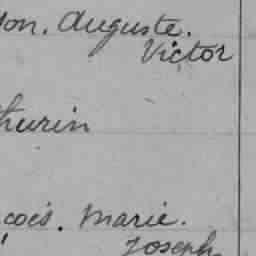 son. Auguste.
Victor
hurin
cois. Marie.
Joseph